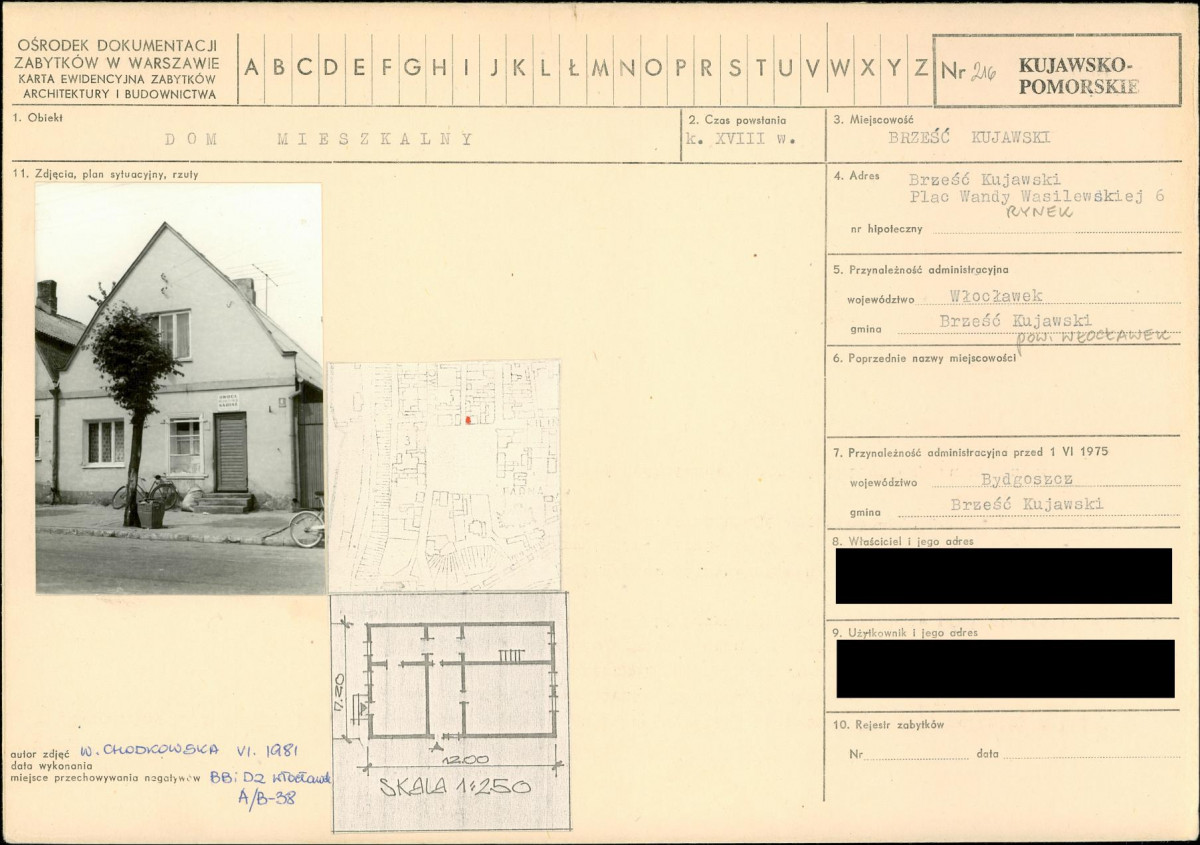 OŚRODEK DOKUMENTACJI
ZABYTKÓW W WARSZAWIE
KARTA EWIDENCYJNA ZABYTKÓW
ARCHITEKTURY I BUDOWNICTWA
A B C D E F G H I J K L Ł M N O P R S T U V W X Y Z
Nr 216
KUJAWSKO-
POMORSKIE
1. Obiekt
DOM MIESZKALNY
2. Czas powstania
k. XVIII w.
3. Miejscowość
BRZEŚĆ KUJAWSKI
11. Zdjęcia, plan sytuacyjny, rzuty
4. Adres
Brześć Kujawski
Plac Wandy Wasilewskiej 6
RYNEK
nr hipoteczny
5. Przynależność administracyjna
województwo Włocławek
gmina Brześć Kujawski
pow. WŁOCŁAWEK
6. Poprzednie nazwy miejscowości
7. Przynależność administracyjna przed 1 VI 1975
województwo Bydgoszcz
gmina Brześć Kujawski
8. Właściciel i jego adres
9. Użytkownik i jego adres
10. Rejestr zabytków
Nr data
7.20
12.00
SKALA 1:250
autor zdjęć W. CHODKOWSKA VI. 1981
data wykonania
miejsce przechowywania negatywów BBiDZ Włocławek
A/B-38